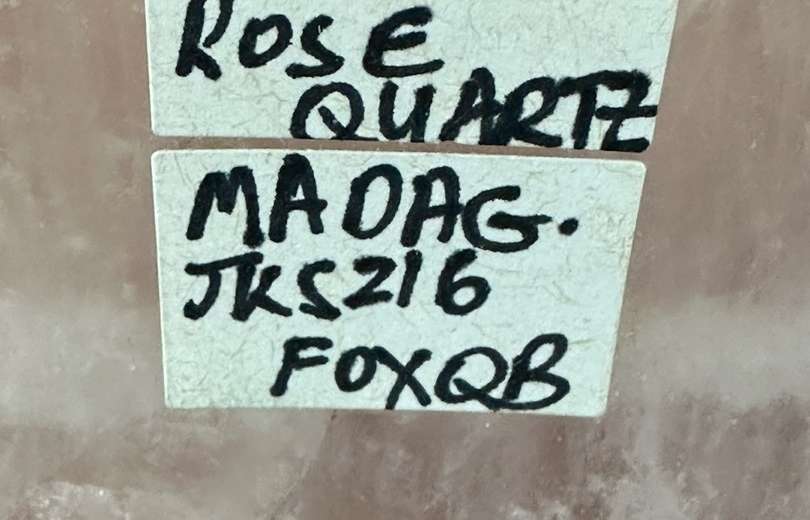 ROSE
QUARTZ
MADAG.
JKS216
FOXQB